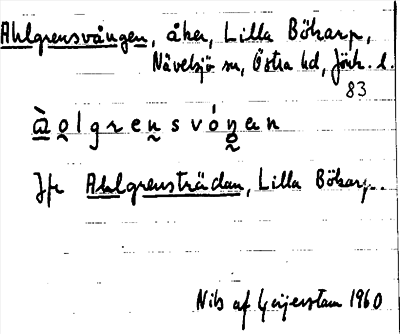 Ahlgrensvången, åker, Lilla Bökarp,
Nävelsjö sn, Östra hd, Jönk. l.
83
à̱o̰lgreṉsvóṉ̥an
Jfr Ahlgrensträdan, Lilla Bökarp.
Nils af Geijerstam 1960